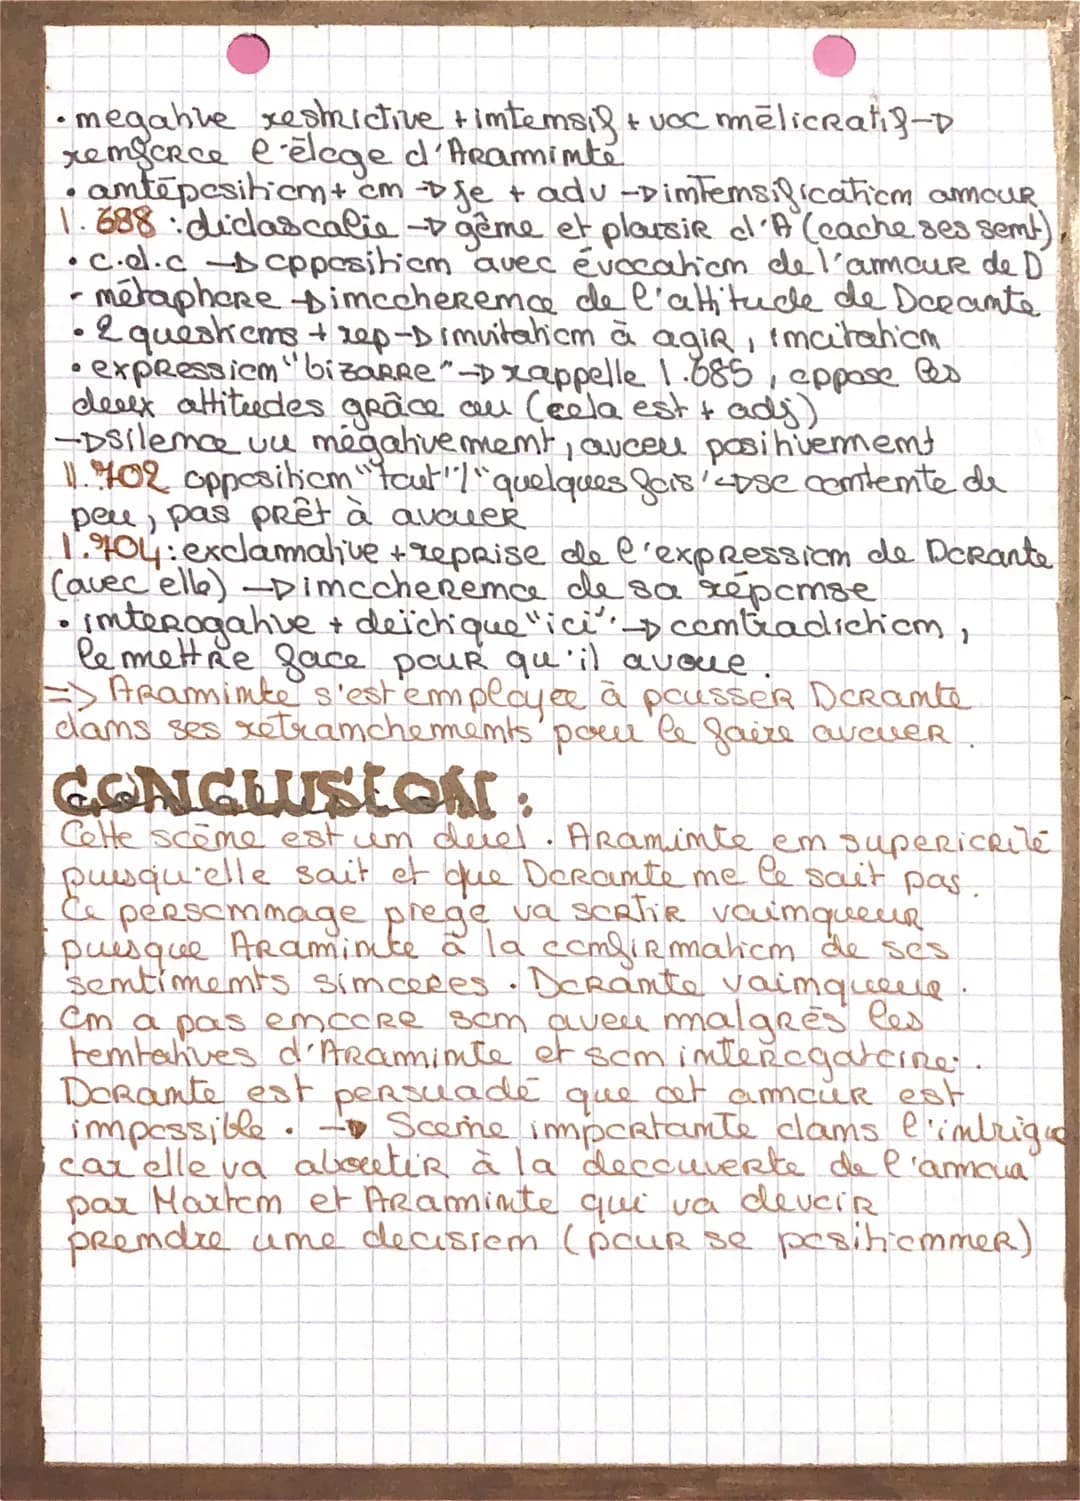 • negative restrictive + intensif + voc mélioratif →
renforce l'éloge d'Araminte
• antéposition + on → je + adv → intensification amour
l. 688 : didascalie → gêne et plaisir d'A (cache ses sent)
• c.o.c → opposition avec évocation de l'amour de D
- métaphore → incoherence de l'attitude de Dorante
• 2 questions + rep → invitation à agir, incitation
• expression "bizarre" → rappelle l. 685, oppose les
deux attitudes grâce au (cela est + adj)
→ silence vu négativement, aveu positivement
ll. 702 opposition "tout"/"quelques fois" → se contente de
peu, pas prêt à avouer
l. 704 : exclamative + reprise de l'expression de Dorante
(avec elle) → incoherence de sa réponse
• interogative + deïctique "ici" → contradiction,
le mettre face pour qu'il avoue.
=> Araminte s'est employée à pousser Dorante
dans ses retranchements pour le faire avouer.
CONCLUSION :
Cette scène est un duel. Araminte en superiorité
puisqu'elle sait et que Dorante ne le sait pas.
Ce personnage piegé va sortir vainqueur
puisque Araminte à la confirmation de ses
sentiments sinceres. Dorante vainqueur.
On a pas encore son aveu malgrés les
tentatives d'Araminte et son interogatoire.
Dorante est persuadé que cet amour est
impossible. → Scène importante dans l'intrigue
car elle va aboutir à la decouverte de l'amour
par Marton et Araminte qui va devoir
prendre une decision (pour se positionner)